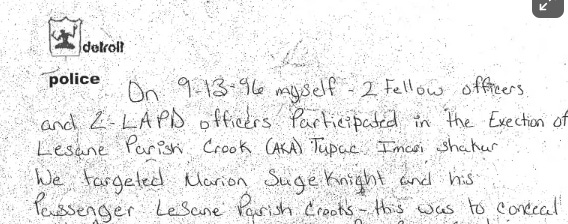 detroit
police
On 9-13-96 myself - 2 Fellow officers
and 2-LAPD officers Participated in the Exection of
Lesane Parish Crook (AKA) Tupac Imari Shakur
We targeted Marion Suge Knight and his
Passenger Lesane Parish Crooks - this was to conceal